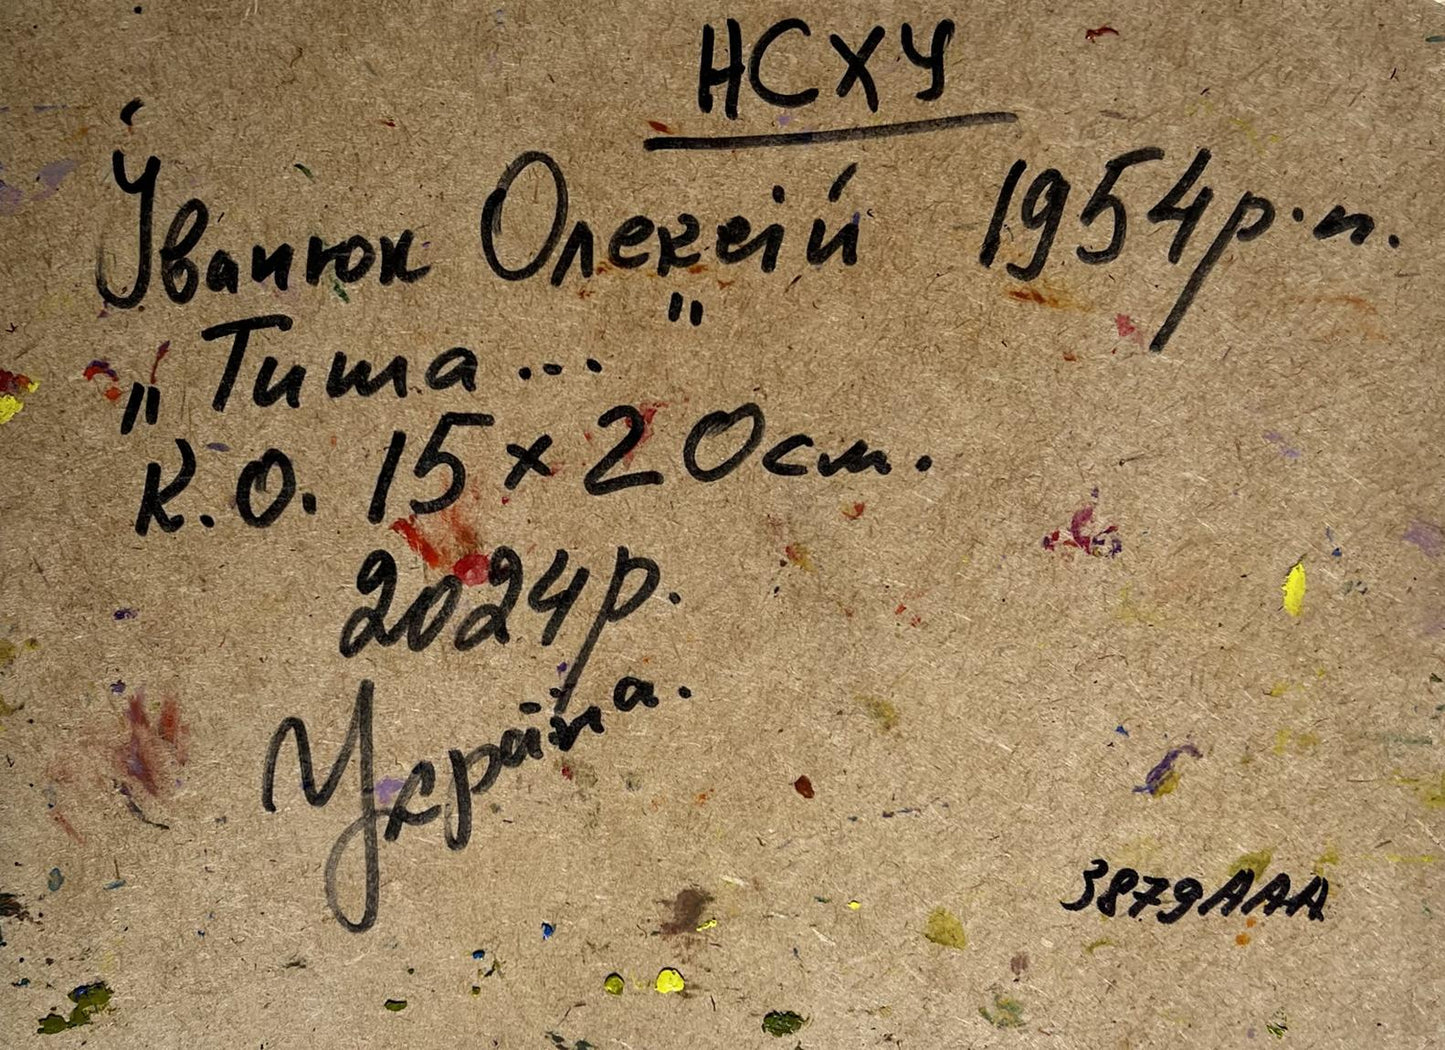 НСХУ
Іванюк Олексій 1954 р.н.
„Тиша..."
К.О. 15x20см.
2024р.
Україна.
3879ААА